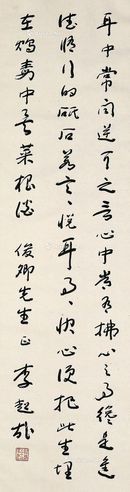 耳中常闻逆耳之言心中常有拂心之事才是进
德修行的砥石若言言悦耳事事快心便把此生埋
在鸩毒中矣 菜根谭 俊卿先生正 李超哉